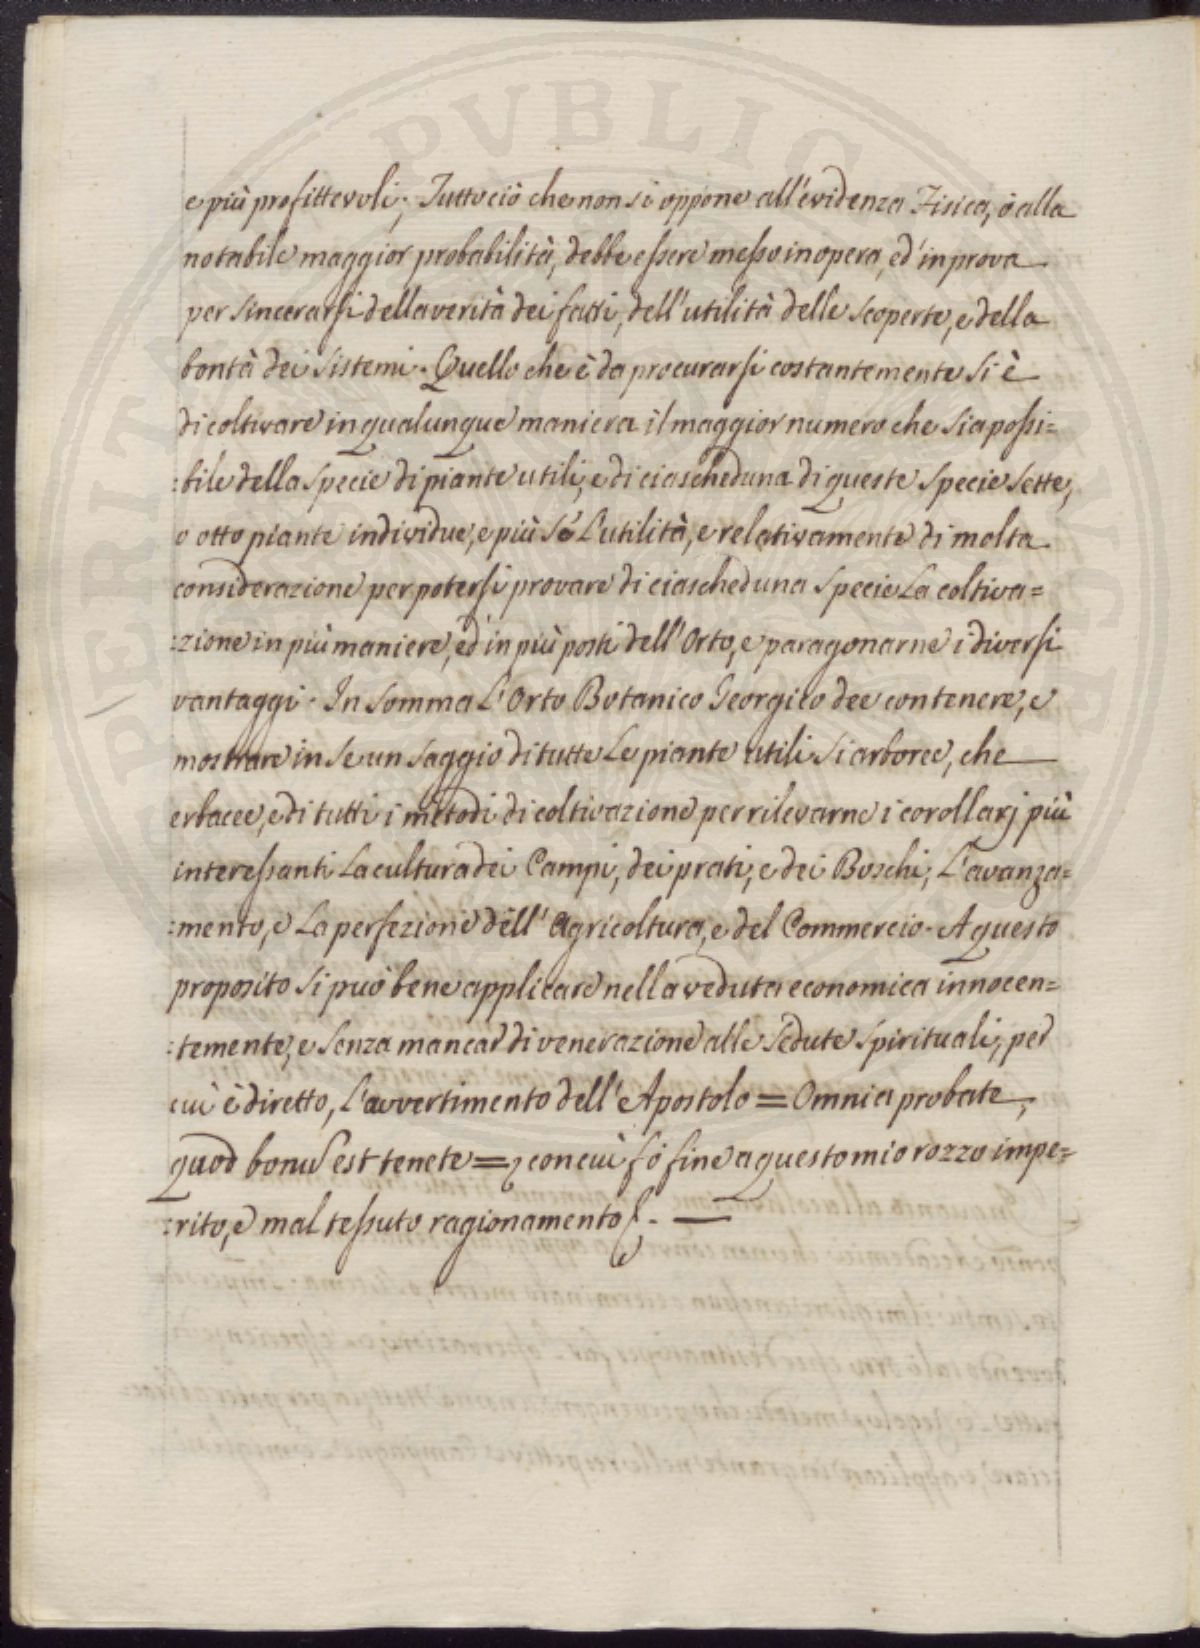 e più profittevoli; Tuttociò che non si oppone all'evidenza Fisica, ò alla
notabile maggior probabilità, debbe essere messo in opera, ed' in prova
per sincerarsi della verità dei fatti, dell'utilità delle scoperte, e della
bontà dei Sistemi. Quello che è da procurarsi costantemente si è
di coltivare in qualunque maniera il maggior numero che sia possi=
:bile della specie di piante utili, e di ciascheduna di queste specie sette,
o otto piante individue, e più se L'utilità, e relativamente di molta
considerazione per potersi provare di ciascheduna specie La coltiva=
:zione in più maniere, ed in più posti dell'Orto, e paragonarne i diversi
vantaggi. In somma L'Orto Botanico Georgico dee contenere, e
mostrare in se un saggio di tutte Le piante utili si arboree, che
erbacee, e di tutti i metodi di coltivazione per rilevarne i corollarj più
interessanti La cultura dei Campi, dei prati, e dei Boschi; L'avanza=
:mento, e La perfezione dell'Agricoltura, e del Commercio. A questo
proposito si può bene applicare nella veduta economica innocen=
:temente, e senza mancar di venerazione alle Sedute Spirituali, per
cui è diretto, L'avvertimento dell'Apostolo = Omnia probate,
quod bonum est tenete = con cui fò fine a questo mio rozzo impe=
:rito, e mal tessuto ragionamento.